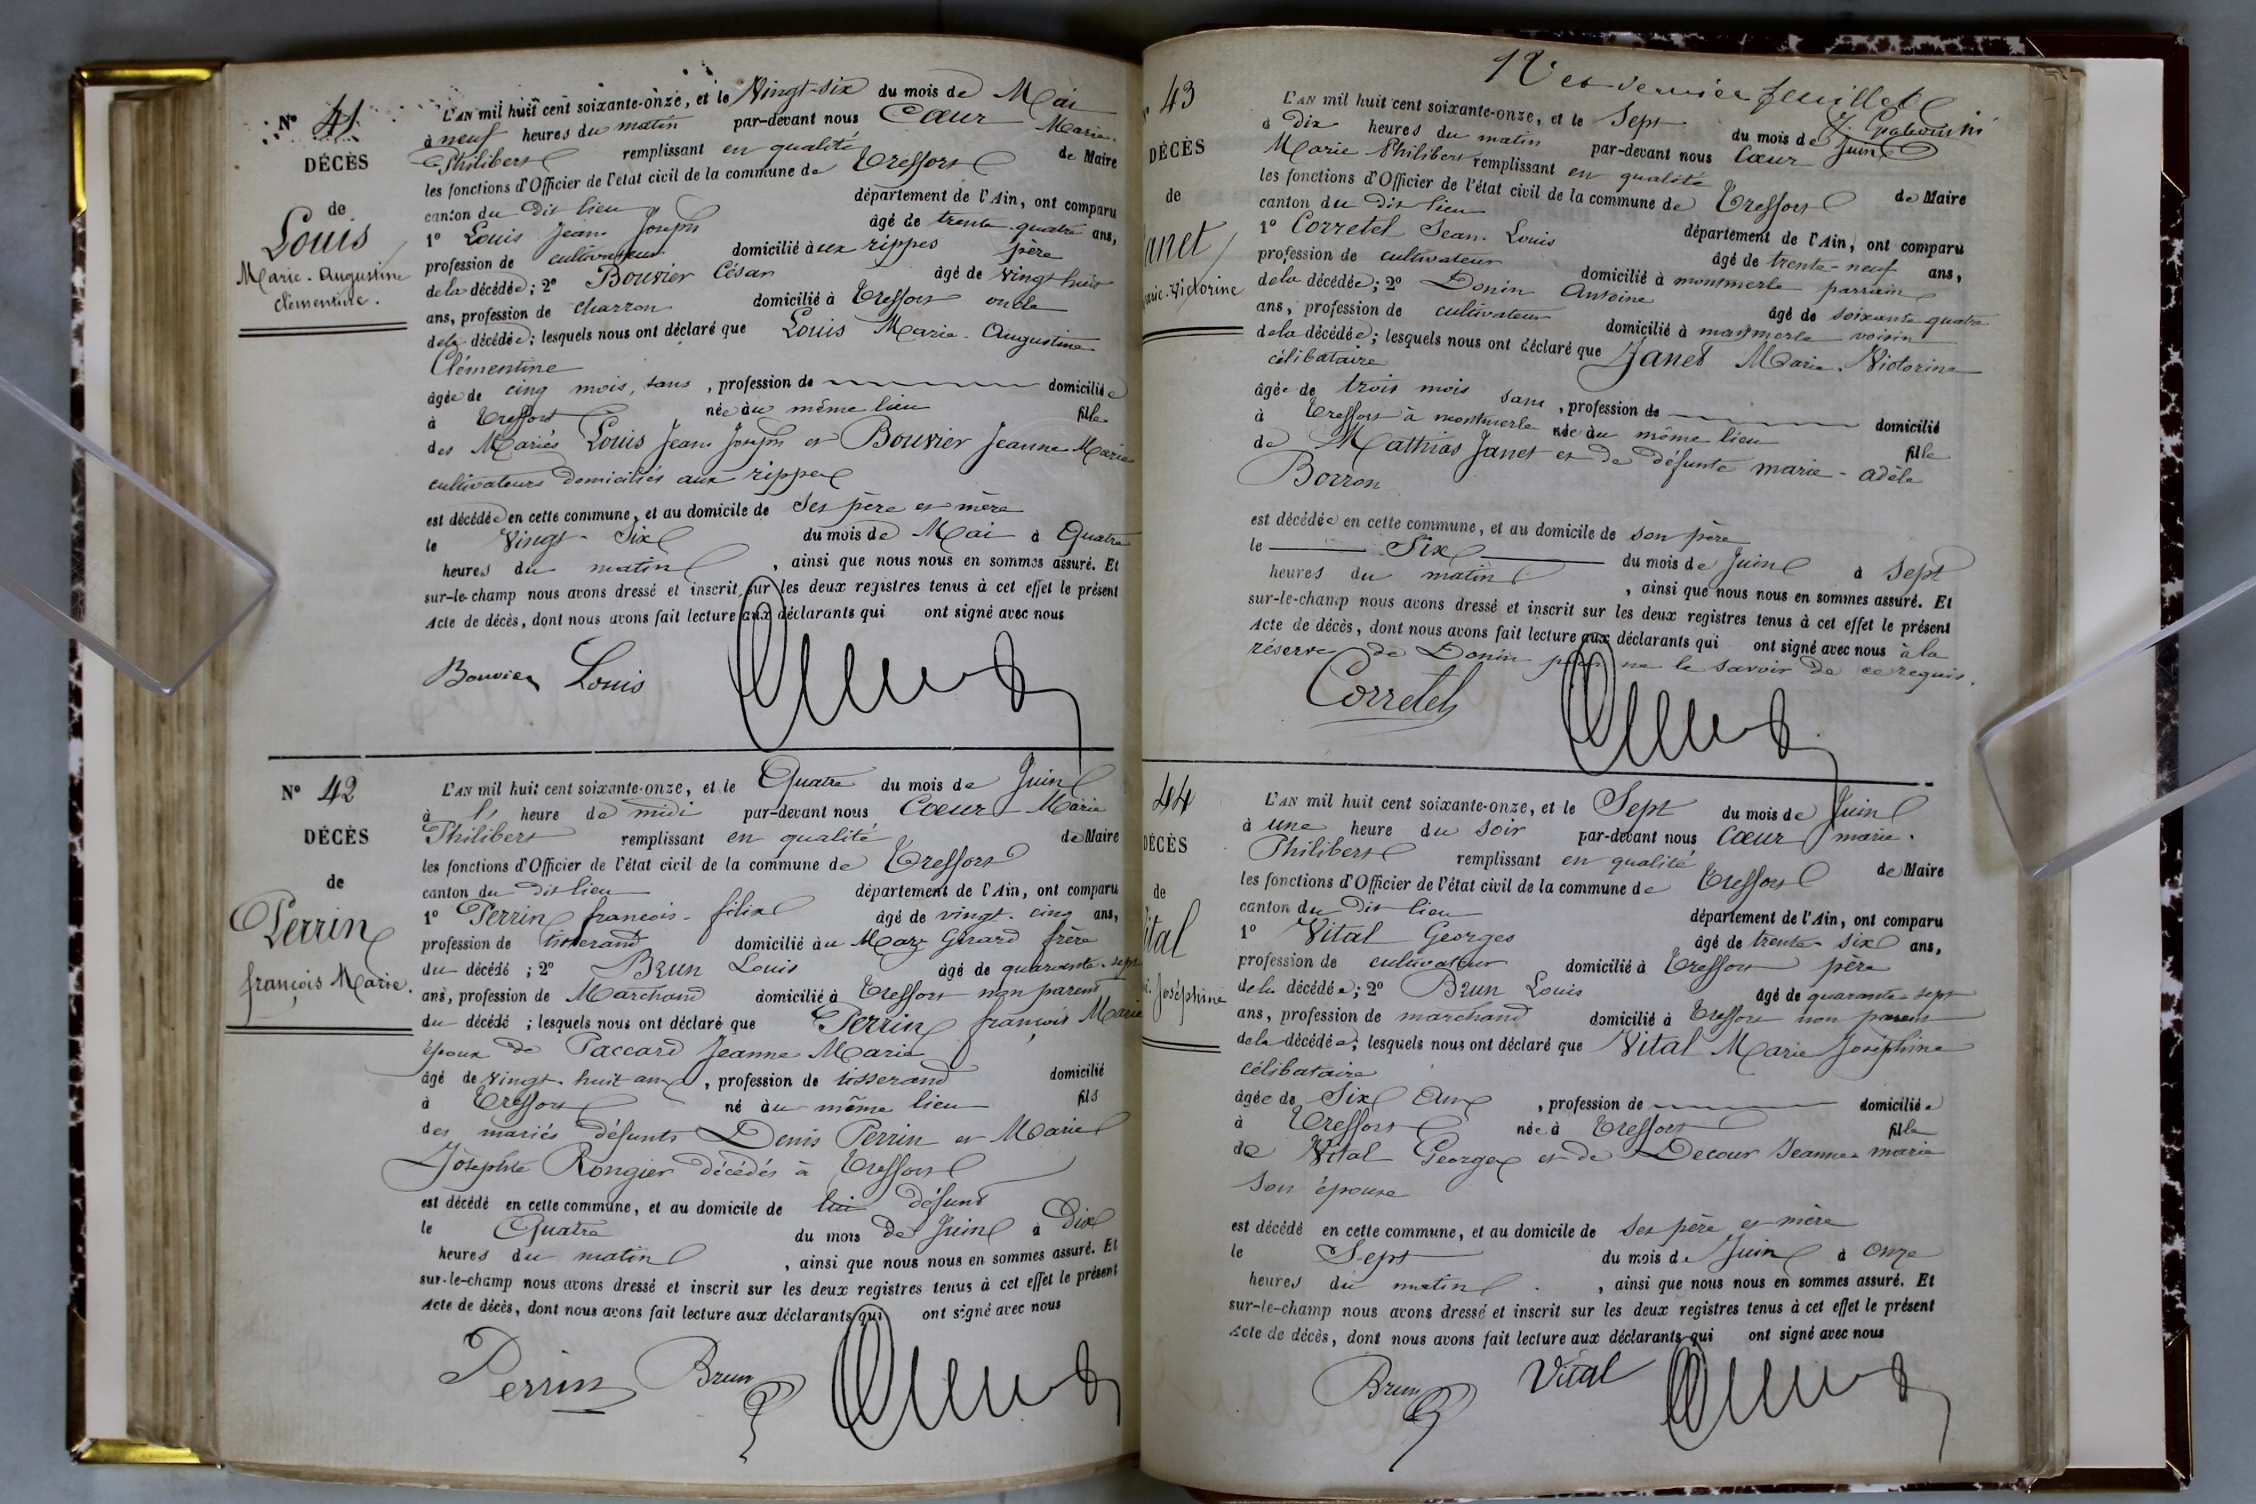 N° 41
DÉCÈS
de
Louis
Marie-Augustine
Clémentine.
L'AN mil huit cent soixante-onze, et le Vingt-six du mois de Mai
à neuf heures du matin par-devant nous Cœur Marie
Philibert remplissant en qualité de Maire
les fonctions d'Officier de l'état civil de la commune de Treffort
canton du dit lieu département de l'Ain, ont comparu
1° Louis Jean Joseph âgé de trente-quatre ans,
profession de cultivateur domicilié aux rippes père
de la décédée; 2° Bouvier César âgé de vingt huit
ans, profession de charron domicilié à Treffort oncle
de la décédée; lesquels nous ont déclaré que Louis Marie-Augustine
Clémentine
âgée de cinq mois, sans, profession de domiciliée
à Treffort née au même lieu fille
des Mariés Louis Jean Joseph et Bouvier Jeanne Marie
cultivateurs domiciliés aux rippes
est décédée en cette commune, et au domicile de ses père et mère
le Vingt-Six du mois de Mai à Quatre
heures du matin, ainsi que nous nous en sommes assuré. Et
sur-le-champ nous avons dressé et inscrit sur les deux registres tenus à cet effet le présent
Acte de décès, dont nous avons fait lecture aux déclarants qui ont signé avec nous
Bouvier Louis
N° 42
DÉCÈS
de
Perrin
françois Marie.
L'AN mil huit cent soixante-onze, et le Quatre du mois de Juin
à l' heure de midi par-devant nous Cœur Marie
Philibert remplissant en qualité de Maire
les fonctions d'Officier de l'état civil de la commune de Treffort
canton du dit lieu département de l'Ain, ont comparu
1° Perrin francois-félix âgé de vingt-cinq ans,
profession de tisserand domicilié au Maze Girard frère
du décédé; 2° Brun Louis âgé de quarante-sept
ans, profession de Marchand domicilié à Treffort non parent
du décédé; lesquels nous ont déclaré que Perrin françois Marie
époux de Paccard Jeanne Marie
âgé de vingt-huit ans, profession de tisserand domicilié
à Treffort né au même lieu fils
des mariés défunts Denis Perrin et Marie
Josephte Rongier décédés à Treffort
est décédé en cette commune, et au domicile de lui défunt
le Quatre du mois de Juin à Dix
heures du matin, ainsi que nous nous en sommes assuré. Et
sur-le-champ nous avons dressé et inscrit sur les deux registres tenus à cet effet le présent
Acte de décès, dont nous avons fait lecture aux déclarants qui ont signé avec nous
Perrin Brun
12 et dernier feuillet
43
DÉCÈS
de
Janet
Marie-Victorine
L'AN mil huit cent soixante-onze, et le Sept du mois de Juin
à Dix heures du matin par-devant nous Cœur
Marie Philibert remplissant en qualité de Maire
les fonctions d'Officier de l'état civil de la commune de Treffort
canton du dit lieu département de l'Ain, ont comparu
1° Corretel Jean-Louis âgé de trente-neuf ans,
profession de cultivateur domicilié à montmerle parrain
de la décédée; 2° Donin Antoine âgé de soixante quatre
ans, profession de cultivateur domicilié à montmerle voisin
de la décédée; lesquels nous ont déclaré que Janet Marie-Victorine
célibataire
âgée de trois mois sans, profession de domicilié
à Treffort à montmerle née au même lieu fille
de Mathias Janet et de défunte marie-adèle
Borron
est décédée en cette commune, et au domicile de son père
le Six du mois de Juin à sept
heures du matin, ainsi que nous nous en sommes assuré. Et
sur-le-champ nous avons dressé et inscrit sur les deux registres tenus à cet effet le présent
Acte de décès, dont nous avons fait lecture aux déclarants qui ont signé avec nous à la
réserve de Donin pour ne le savoir de ce requis.
Corretel
44
DÉCÈS
de
Vital
Joséphine
L'AN mil huit cent soixante-onze, et le Sept du mois de Juin
à une heure du soir par-devant nous Cœur marie-
Philibert remplissant en qualité de Maire
les fonctions d'Officier de l'état civil de la commune de Treffort
canton du dit lieu département de l'Ain, ont comparu
1° Vital Georges âgé de trente-six ans,
profession de cultivateur domicilié à Treffort père
de la décédée; 2° Brun Louis âgé de quarante-sept
ans, profession de marchand domicilié à Treffort non parent
de la décédée; lesquels nous ont déclaré que Vital Marie Joséphine
célibataire
âgée de Six ans, profession de domiciliée
à Treffort née à Treffort fille
de Vital Georges et de Decour Jeanne-marie
son épouse
est décédé en cette commune, et au domicile de ses père et mère
le Sept du mois de Juin à onze
heures du matin, ainsi que nous nous en sommes assuré. Et
sur-le-champ nous avons dressé et inscrit sur les deux registres tenus à cet effet le présent
Acte de décès, dont nous avons fait lecture aux déclarants qui ont signé avec nous
Brun Vital